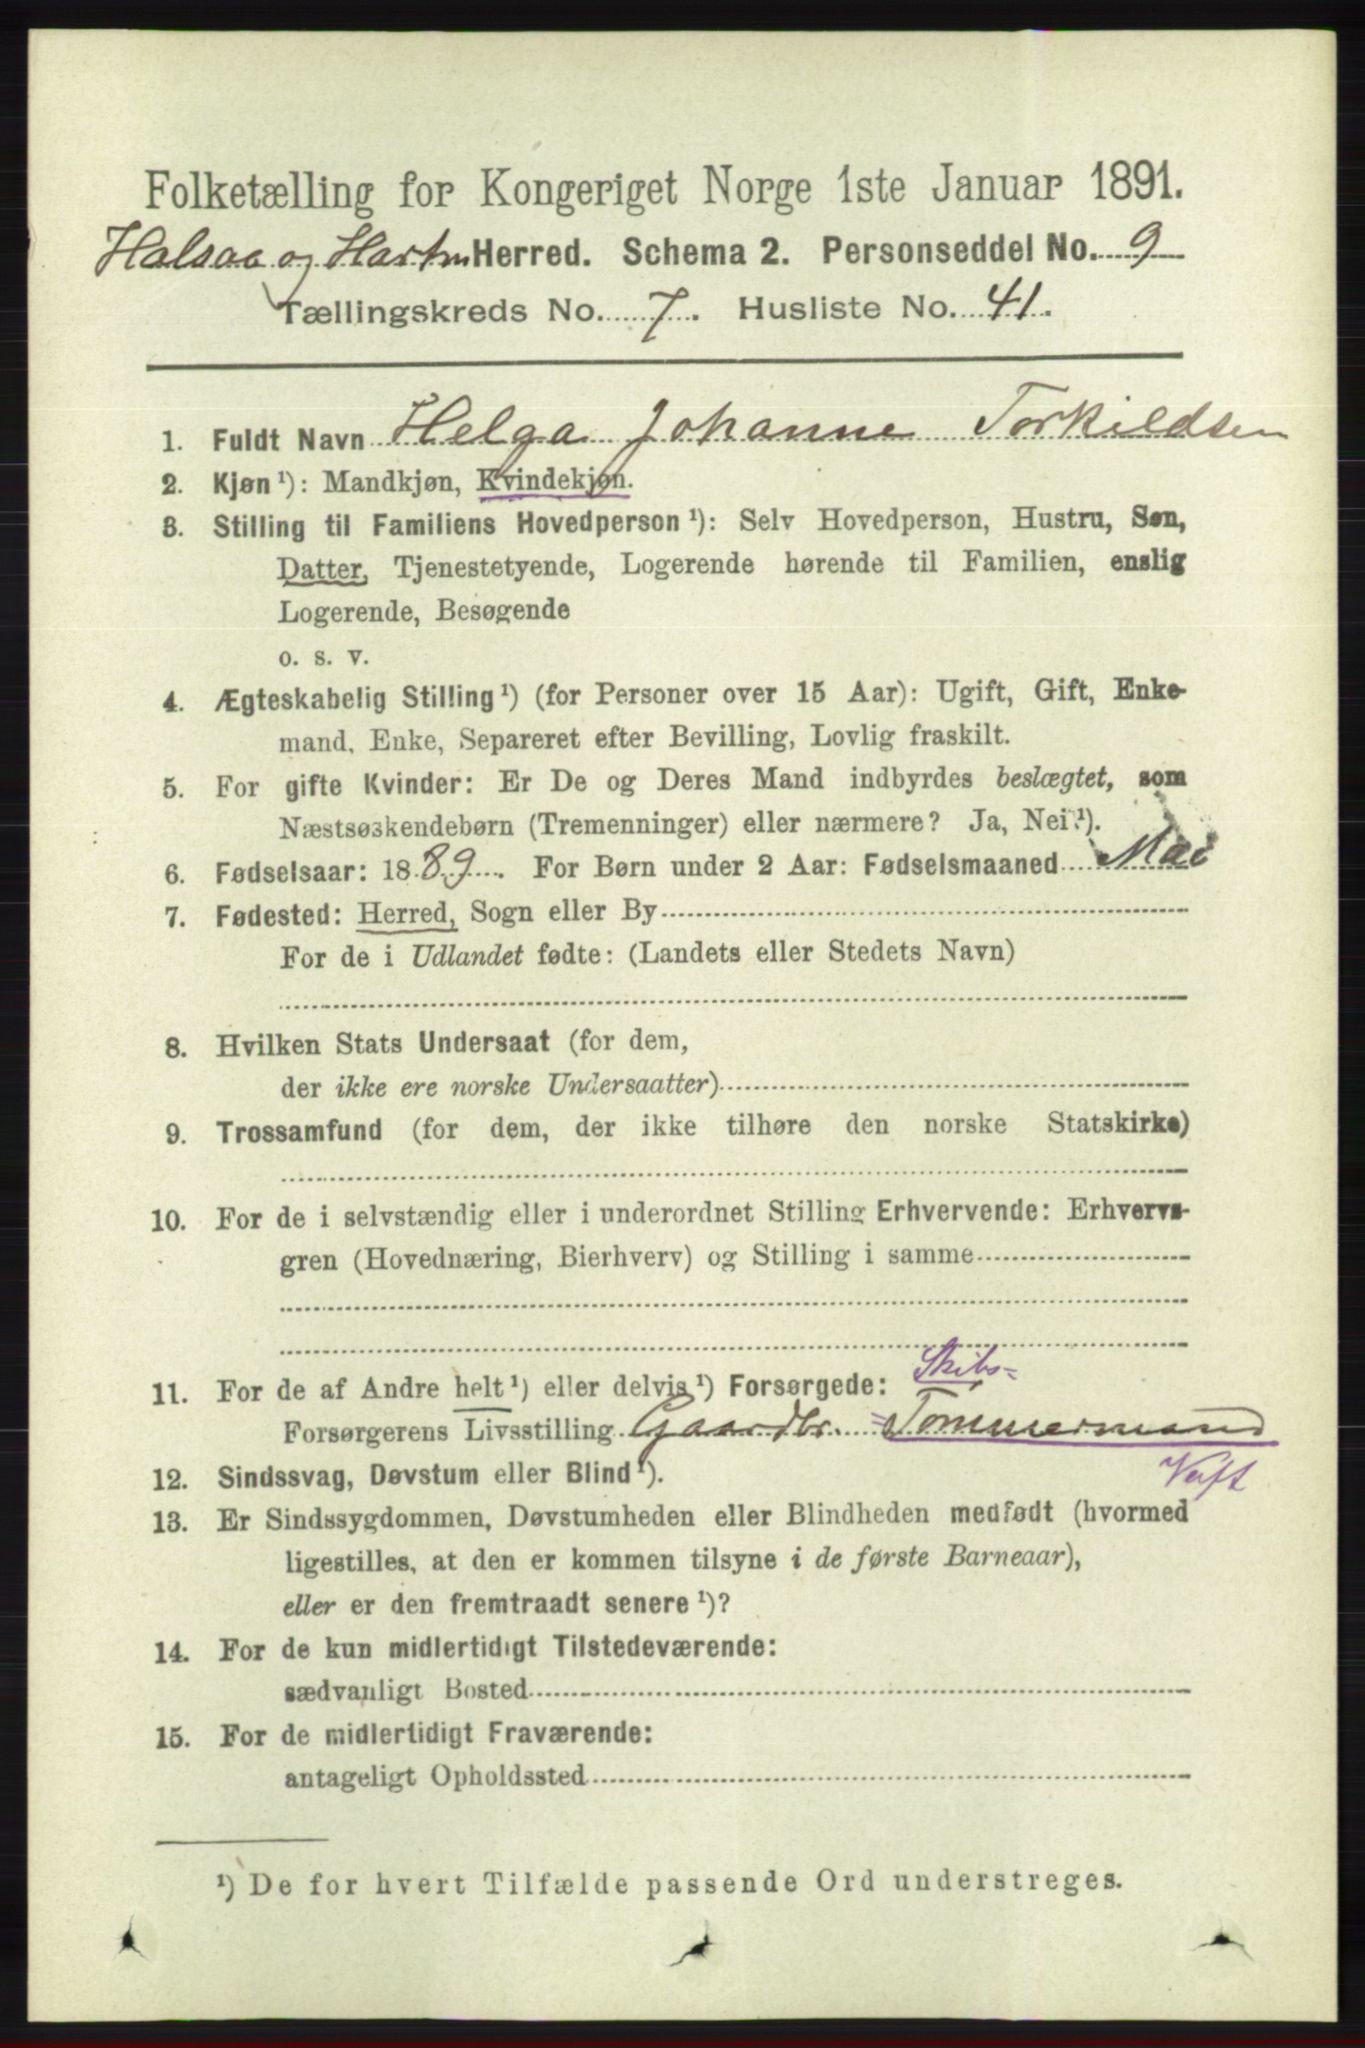 Folketælling for Kongeriget Norge 1ste Januar 1891.
Halsaa og Hartm Herred. Schema 2. Personseddel No. 9
Tællingskreds No. 7. Husliste No. 41.
1. Fuldt Navn Helga Johanne Torkildsen
2. Kjøn ¹): Mandkjøn, Kvindekjøn.
3. Stilling til Familiens Hovedperson ¹): Selv Hovedperson, Hustru, Søn,
Datter, Tjenestetyende, Logerende hørende til Familien, enslig
Logerende, Besøgende
o. s. v.
4. Ægteskabelig Stilling ¹) (for Personer over 15 Aar): Ugift, Gift, Enke-
mand, Enke, Separeret efter Bevilling, Lovlig fraskilt.
5. For gifte Kvinder: Er De og Deres Mand indbyrdes beslægtet, som
Næstsøskendebørn (Tremenninger) eller nærmere? Ja, Nei ¹).
6. Fødselsaar: 1889. For Børn under 2 Aar: Fødselsmaaned Mai
7. Fødested: Herred, Sogn eller By
For de i Udlandet fødte: (Landets eller Stedets Navn)
8. Hvilken Stats Undersaat (for dem,
der ikke ere norske Undersaatter)
9. Trossamfund (for dem, der ikke tilhøre den norske Statskirke)
10. For de i selvstændig eller i underordnet Stilling Erhvervende: Erhvervs-
gren (Hovednæring, Bierhverv) og Stilling i samme
Skibs=
11. For de af Andre helt ¹) eller delvis ¹) Forsørgede:
Forsørgerens Livsstilling Gaardbr. =Tommermand
Verft
12. Sindssvag, Døvstum eller Blind ¹).
13. Er Sindssygdommen, Døvstumheden eller Blindheden medfødt (hvormed
ligestilles, at den er kommen tilsyne i de første Barneaar),
eller er den fremtraadt senere ¹)?
14. For de kun midlertidigt Tilstedeværende:
sædvanligt Bosted
15. For de midlertidigt Fraværende:
antageligt Opholdssted
¹) De for hvert Tilfælde passende Ord understreges.